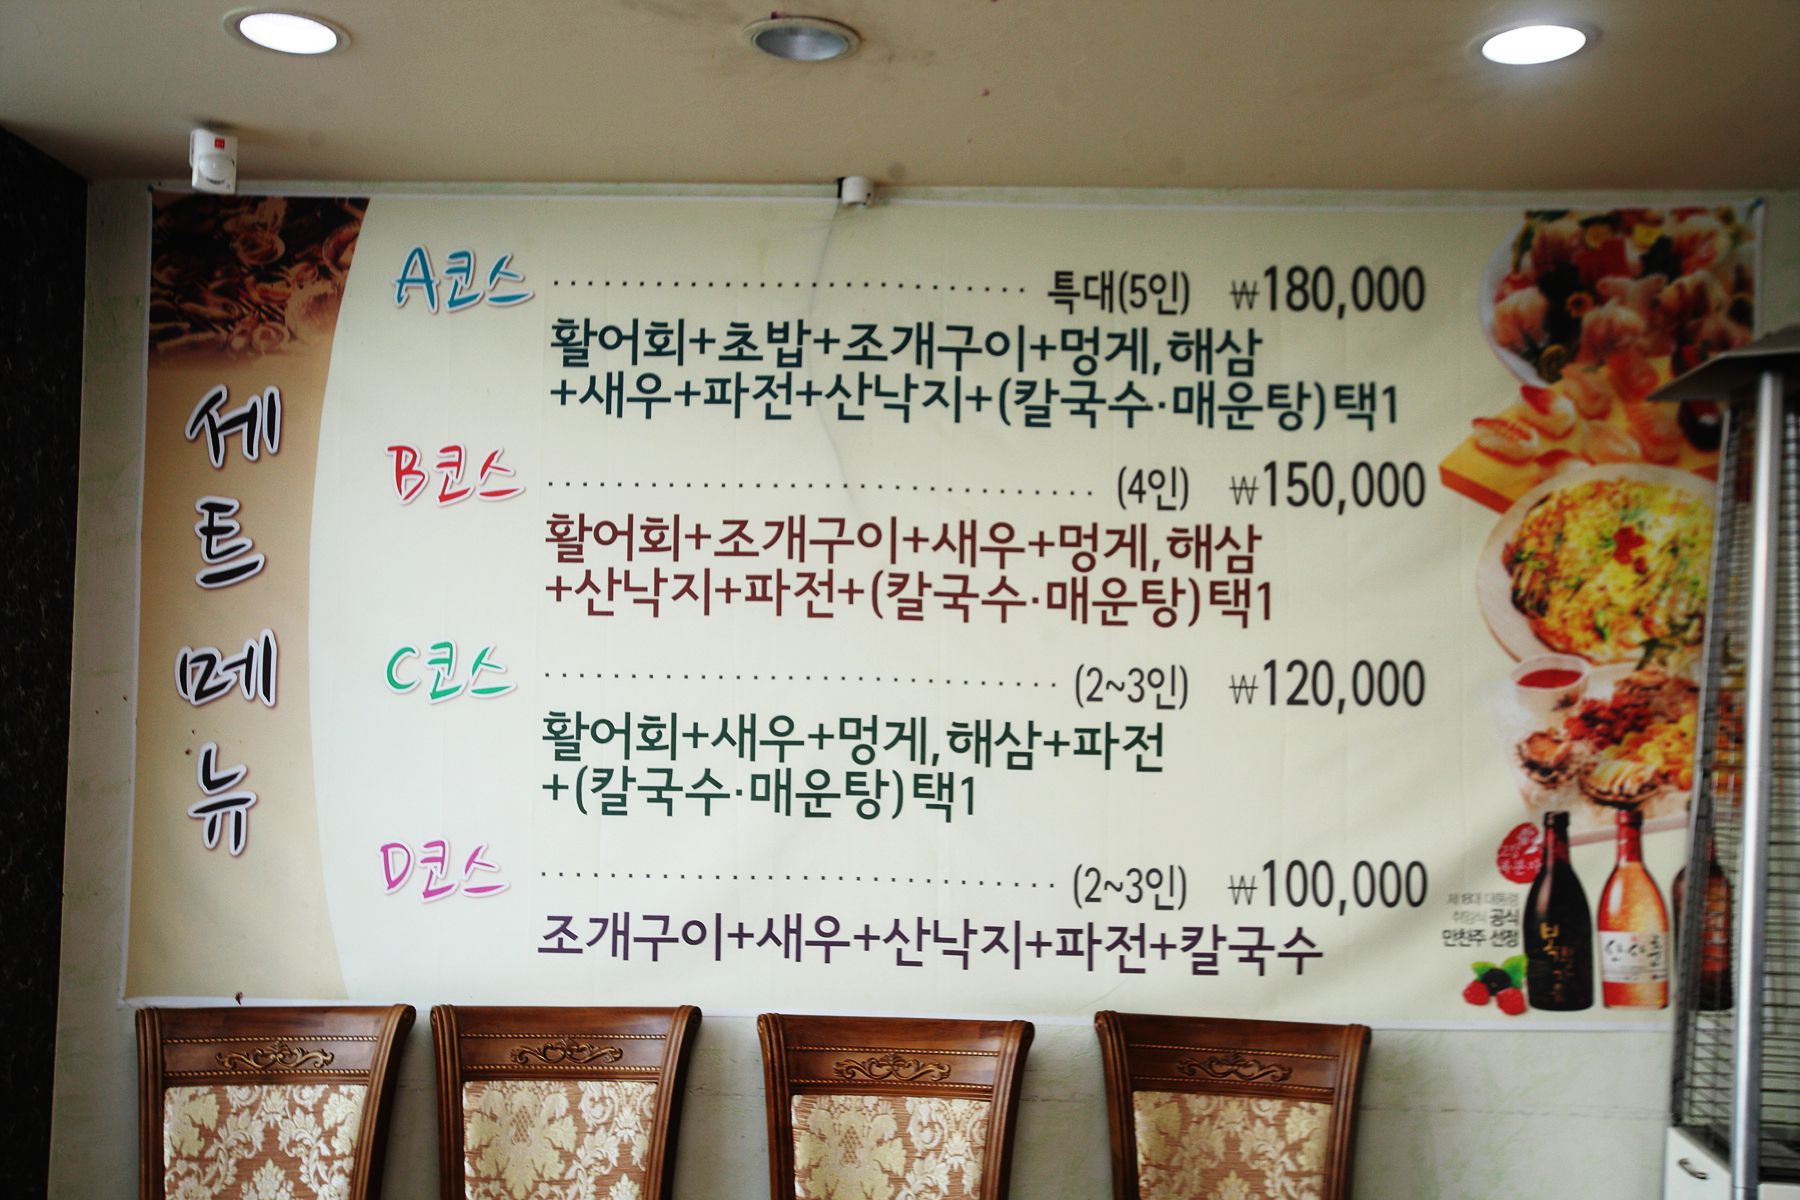 세트메뉴
A코스 ............................ 특대(5인) ₩180,000
활어회+초밥+조개구이+멍게,해삼
+새우+파전+산낙지+(칼국수·매운탕)택1
B코스 ................................ (4인) ₩150,000
활어회+조개구이+새우+멍게,해삼
+산낙지+파전+(칼국수·매운탕)택1
C코스 .............................. (2~3인) ₩120,000
활어회+새우+멍게,해삼+파전
+(칼국수·매운탕)택1
D코스 .............................. (2~3인) ₩100,000
조개구이+새우+산낙지+파전+칼국수
제18대 대통령
취임식 공식
만찬주 선정